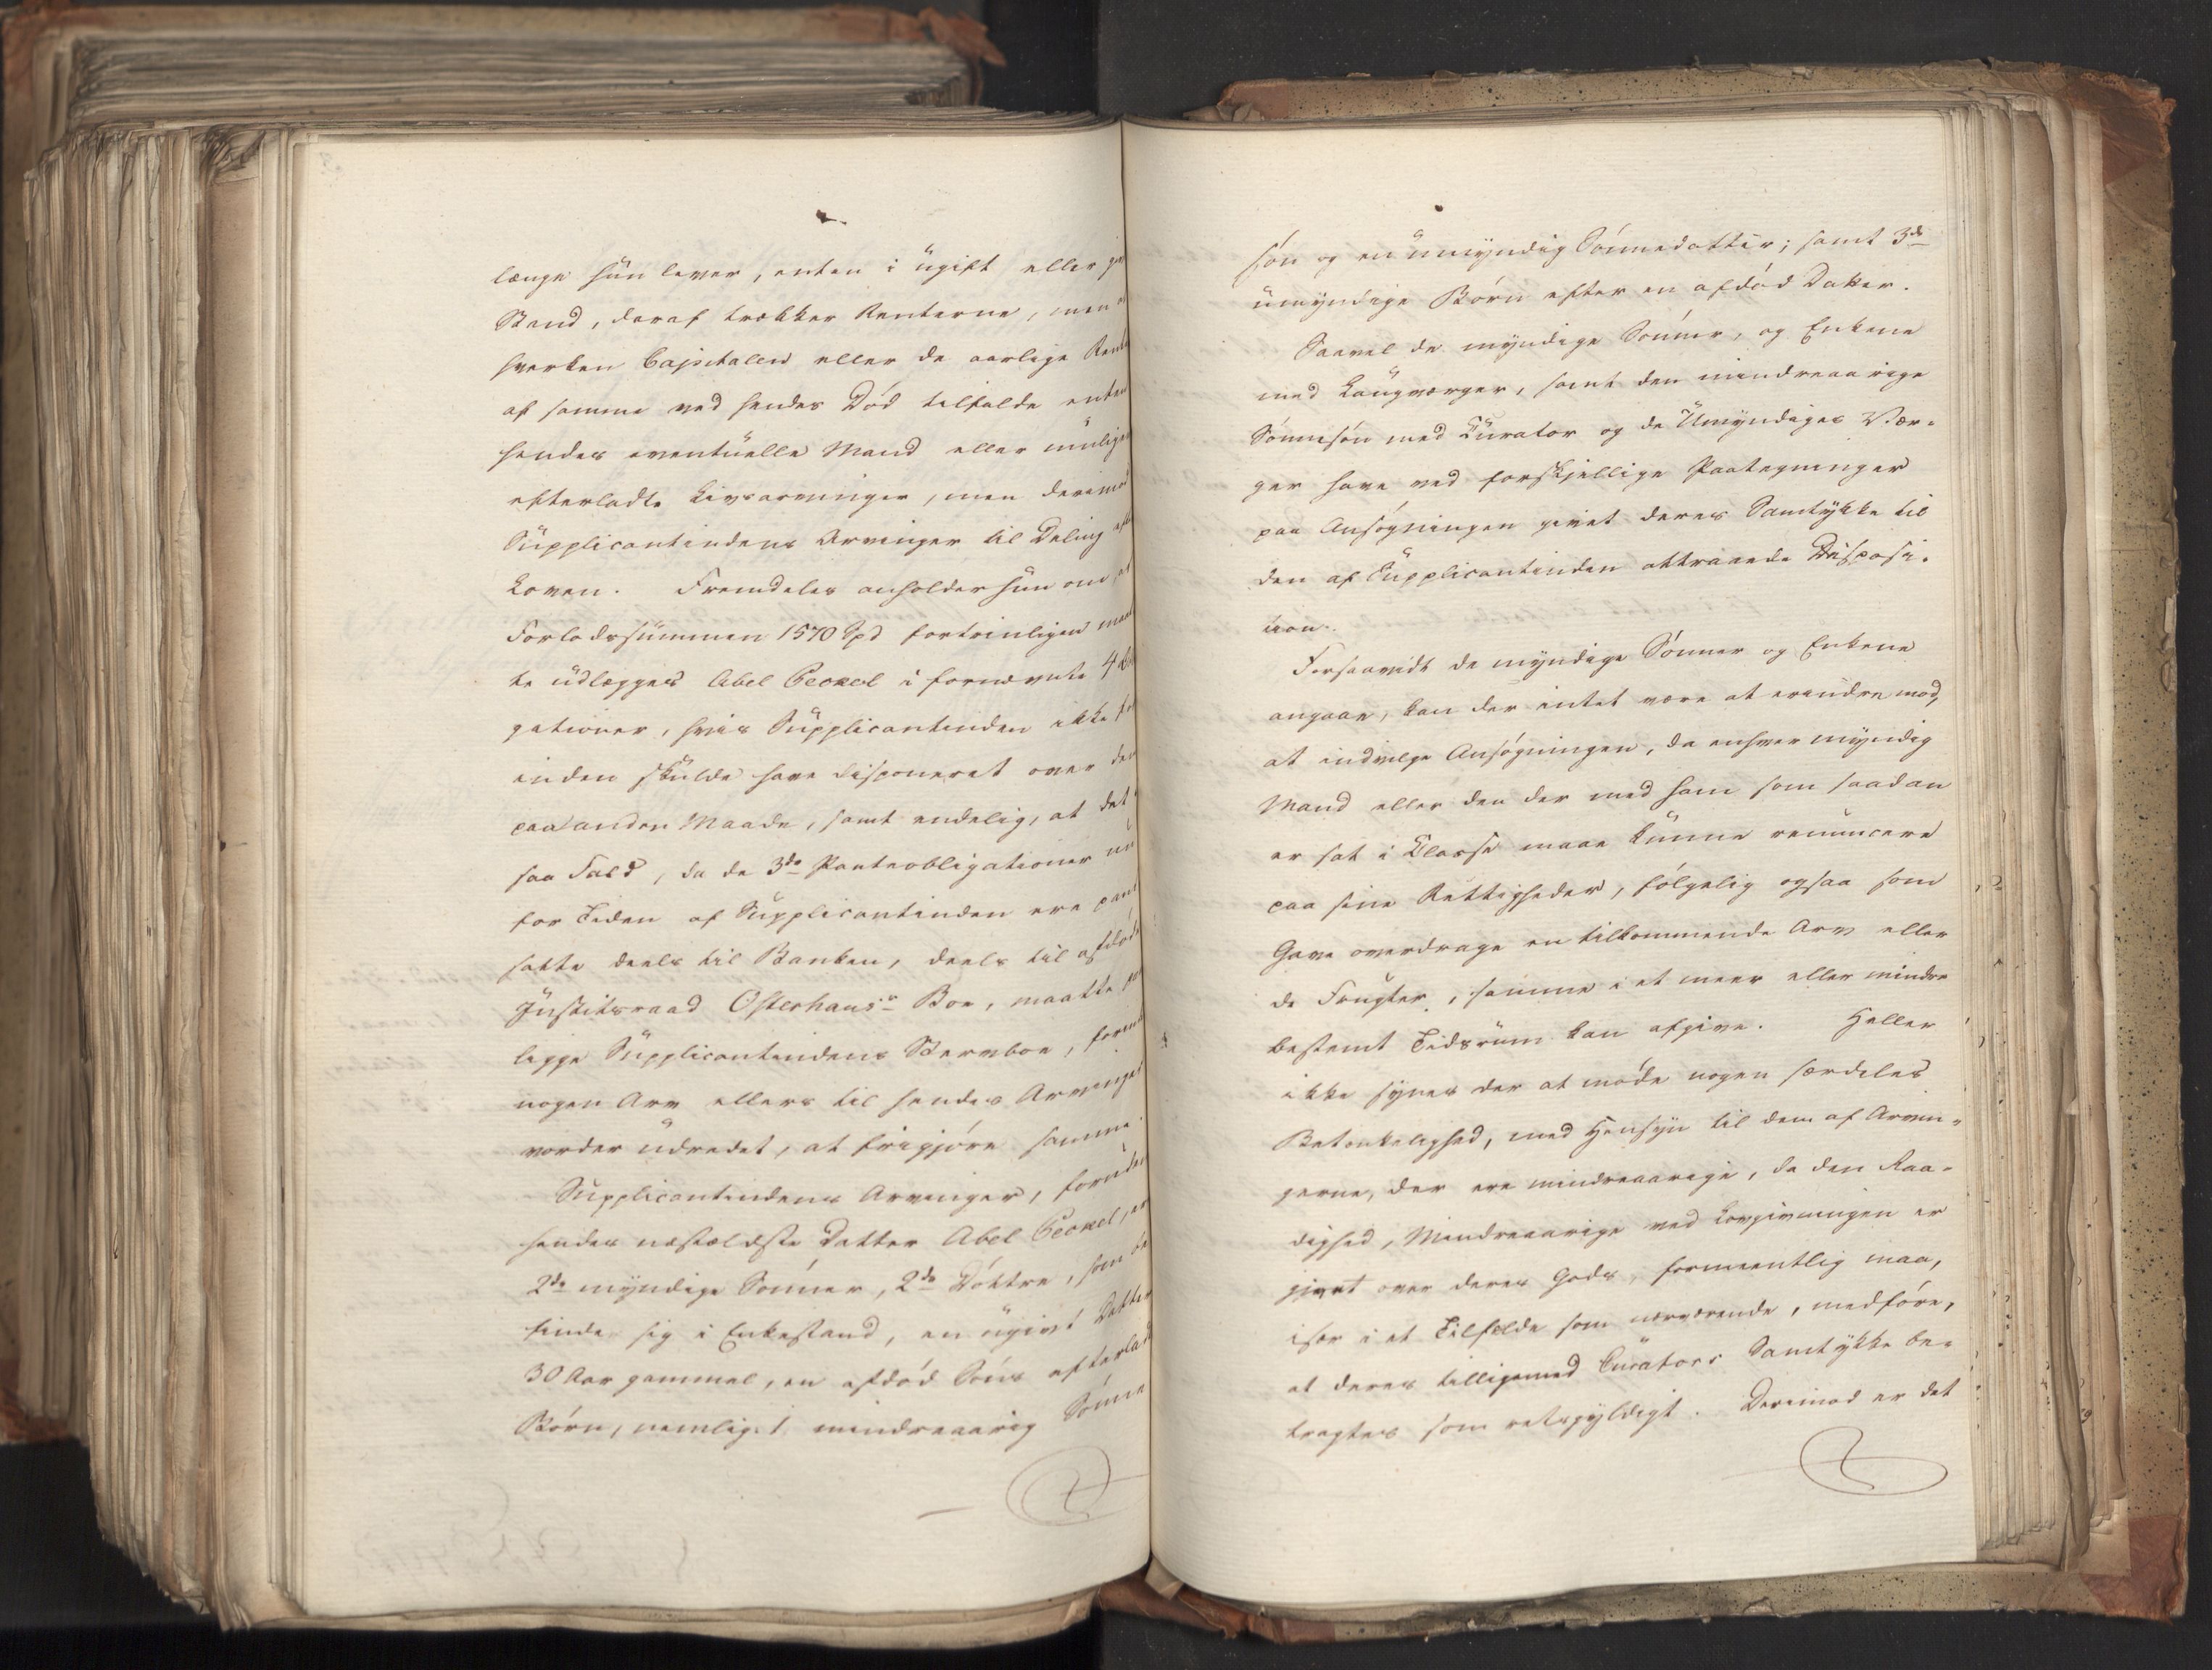 længe hun lever, enten i ugift eller
Stand, deraf trækker Renterne, men
hverken Capitalen eller de aarlige
af samme ved hendes Død tilfalde enten
hendes eventuelle Mand eller mulige
efterladte Livsarvinger, men derimod
Supplicantindens Arvinger til Deling
Loven. Fremdeles anholder hun om, at
Forlodssummen 1570 Spd fortrinligen maat
te udlægges Abel i fornævnte 4
gationer, hvis Supplicantinden ikke
inden skulde have disponeret over
paa anden Maade, samt endelig, at det
saa Fald, da de 3de Panteobligationer nu
for Tiden af Supplicantinden ere pant
satte deels til Banken, deels til afdøde
Justitsraad Osterhaus's Boe, maatte
ligge Supplicantindens Stervboe, forind
nogen Arv ellers til hendes Arvinger
vorder udredet, at frigjøre samme.
Supplicantindens Arvinger, foruden
hendes næstældste Datter Abel , er
2de myndige Sønner, 2de Døttre, som be
finde sig i Enkestand, en ugivt Datter
30 Aar gammel, en afdød Søns efterladte
Børn, nemlig: 1 mindreaarig Sønne
søn og en umyndig Sønnedatter; samt 3de
umyndige Børn efter en afdød Datter.
Saavel de myndige Sønner, og Enkene
med Laugværger, samt den mindreaarige
Sønnesøn med Curator og de Umyndiges Vær-
ger have ved forskjellige Paategninger
paa Ansøgningen givet deres Samtykke til
den af Supplicantinden attraaede Disposi-
tion.
Forsaavidt de myndige Sønner og Enkene
angaae, kan der intet være at erindre mod,
at indvilge Ansøgningen, da enhver myndig
Mand eller den der med ham som saadan
er sat i Classe maae kunne renuncere
paa sine Rettigheder, følgelig ogsaa som
Gave overdrage en tilkommende Arv eller
de Frugter, samme i et meer eller mindre
bestemt Tidsrum kan afgive. Heller
ikke synes der at møde nogen særdeles
Betænkelighed, med Hensyn til dem af Arvin-
gerne, der ere mindreaarige, da den Raa-
dighed, Mindreaarige ved Lovgivningen er
givet over deres Gods, formeentlig maa,
især i et Tilfælde som nærværende, medføre,
at deres tilligemed Curators Samtykke be-
tragtes som retsgyldigt. Derimod er det